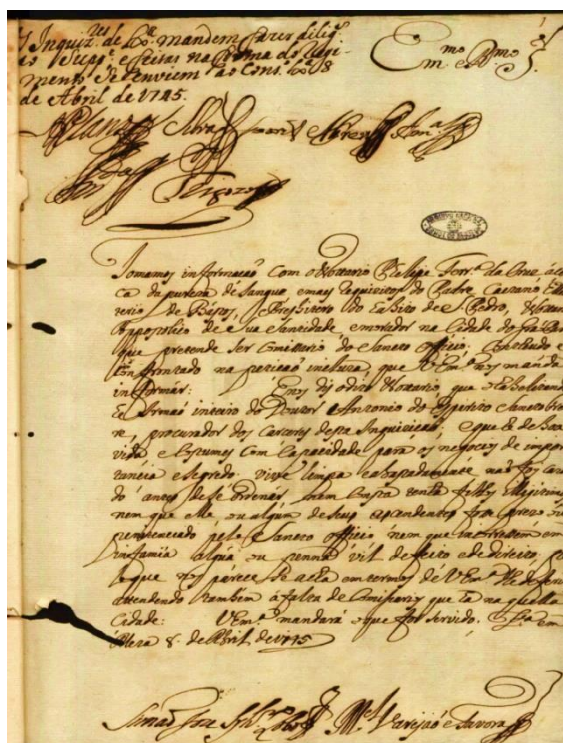 Inquiz.res de Lx.ª mandem fazer dilig.
ao Sup.e e feitas na forma do Regi-
mento se enviem ao Cons.º Lx.ª 8
de Abril de 1745.
Em.mo e R.mo S.r
Sylva Abreu
Trigozo
Tomamos informaçaõ com o Notario Felipe Ferr.ª da Cruz, ácer
ca da pureza de sangue, e mais requizitos do Padre Caetano
de Bastos, Presbitero do Habito de S. Pedro, Notario
Appostolico de Sua Santidade e morador na Cidade do
que pretende ser Comissario do Sancto Officio, Contheudo e
Confrontado na petiçaõ incluza, que V Em.ª nos manda
informar: E nos diz o dito Notario que o habilitando
hé Irmaõ inteiro do Doutor Antonio do Espirito Sancto
procurador dos Carceres desta Inquiziçaõ e que hé de boa
vida e Costumes com Capacidade para os negocios de impor
tancia e segredo: vive limpa e abastadamente naõ foi caza
do antes de se Ordenar, nem Consta tenha filhos illigitimos
nem que elle, ou algum de seus ascendentes fosse prezo ou
penitenciado pelo Sancto officio nem que incorressem em
infamia algũa ou penna vil de feito e de direito, p
lo que nos parece se acha em termos de V Em.ª lhe deferir
attendendo tambem á falta de Comissarios que ha na quella
Cidade: V Em.ª mandará o que for servido. Lx.ª em
Meza 8 de Abril de 1745
Lobo M.el Varejaõ e Tavora